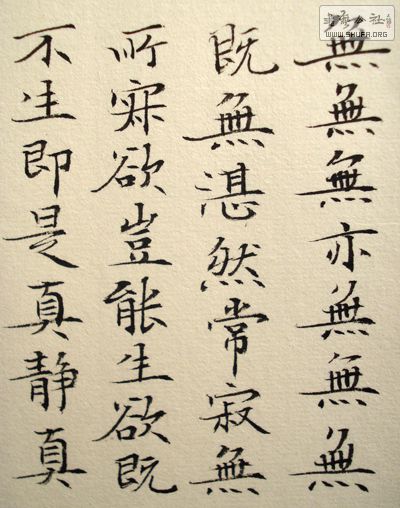 無無無亦無無無
既無湛然常寂無
所寂欲豈能生欲既
不生即是真静真
公社
WWW.SHUFA.ORG